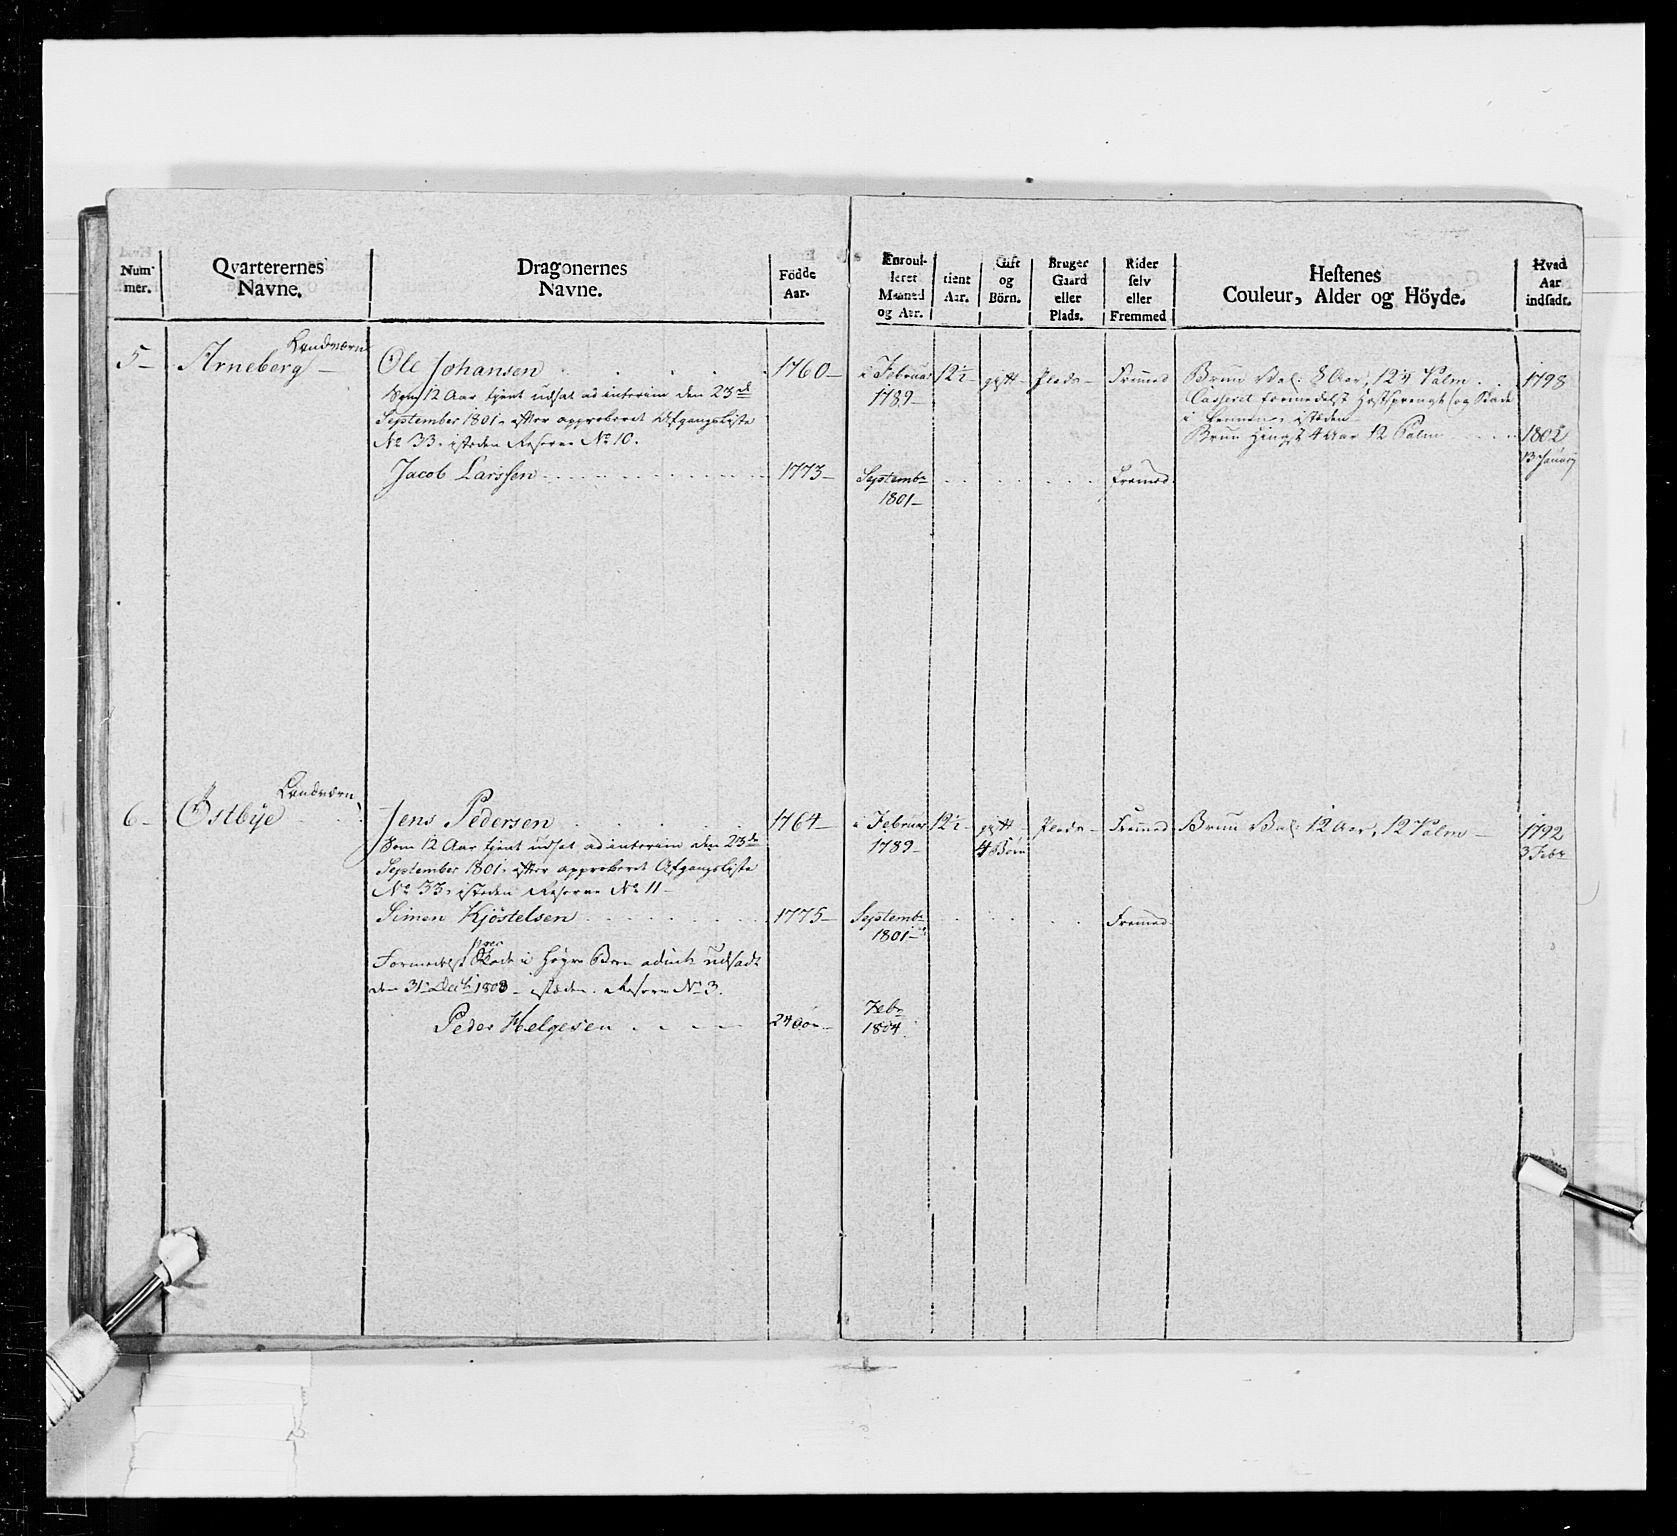 Num-
mer.
Qvarterernes
Navne.
Dragonernes
Navne.
Födde
Aar.
Enroul-
leret
Maaned
og Aar.
tient
Aar.
Gift
og
Börn.
Bruger
Gaard
eller
Plads.
Rider
selv
eller
Fremmed
Hestenes
Couleur, Alder og Höyde.
Hvad
Aar
indsadt.
Landværn
5- Arneberg - Ole Johansen 1760- i Februar 12½- gift- Plads- Fremed Brun Val. 8 Aar, 12¼ Palm. 1798
Som 12 Aar tjent udsat ad interim den 23de 1789- Casseret formedelst Hastsprengt (og Skade
September 1801. efter approberet Afgangsliste i isteden
No 33. isteden Reserve No 10. Brun Hingst 4 Aar 12 Palm 1802
13 January
Jacob Larssen 1773- Septembr Fremed
1801-
Landværn
6- Östbye Jens Pedersen 1764- i Februar 12½- gift- Plads- Fremed Brun Val: 12 Aar, 12 Palm- 1792
Som 12 Aar tjent udsat ad interim den 23de 1789- 4 Börn 3 Febr
September 1801. efter approberet Afgangsliste
No 33. isteden Reserve No 11-
Simen Kjöstelsen 1775- Septembr Fremed
1801-
Formedelst Skade i Høgre Been udsadt
den 31 Decbr 1803 - isteden Reserve No 3.
Peder Helgesen 24 Febr
1804.